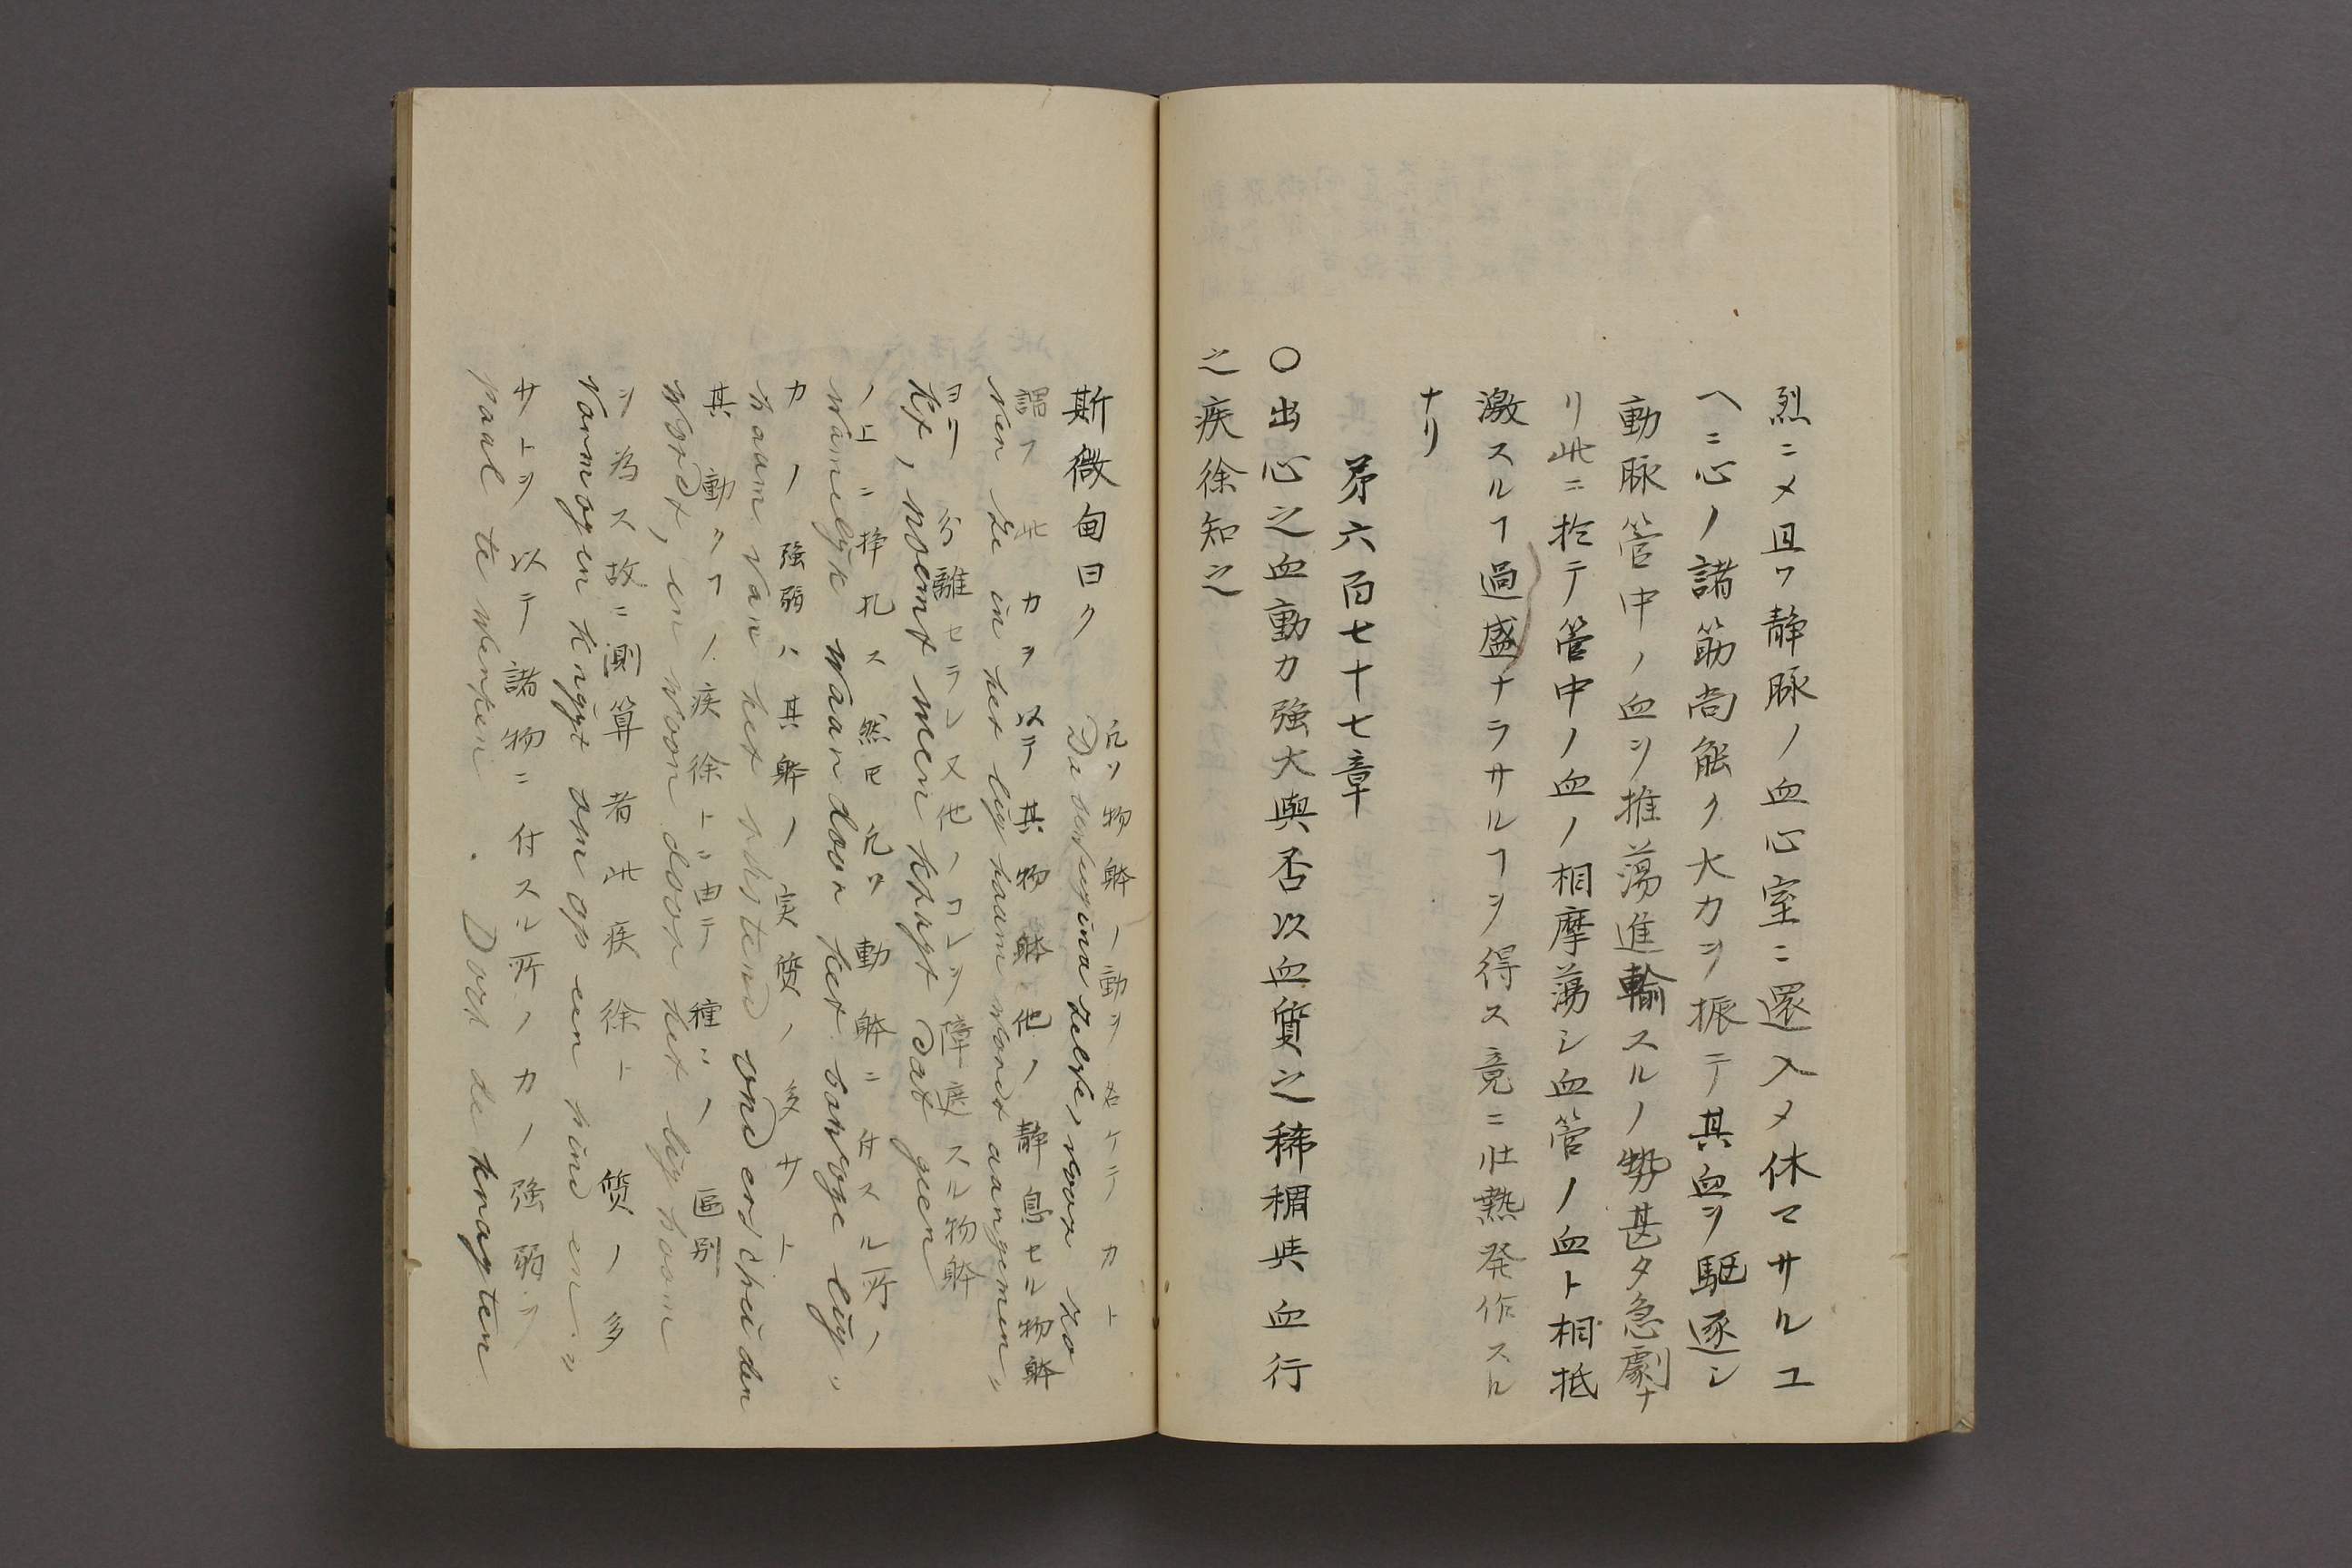 烈ニメ且ツ静脉ノ血心室ニ還入メ休マサルユ
ヘニ心ノ諸筋尚能ク大力ヲ振テ其血ヲ駆逐シ
動脉管中ノ血ヲ推蕩進輸スルノ勢甚タ急劇ナ
リ此ニ於テ管中ノ血ノ相摩蕩シ血管ノ血ト相抵
激スルヿ過盛ナラサルヿヲ得ス竟ニ壮熱発作スル
ナリ
第六百七十七章
〇出心之血動力強大與否以血質之稀稠與血行
之疾徐知之
斯微甸曰ク
凡ソ物躰ノ動ヲ名ケテ力ト
De
謂フ此力ヲ以テ其物躰他ノ静息セル物躰
in het lighaam word aangemen„
ヨリ分離セラレ又他ノコレヲ障遮スル物躰
noemt men kragt Dat geen
ノ上ニ挣扎ス然𪜈凡ソ動躰ニ付スル所ノ
waar door het
力ノ強弱ハ其躰ノ実質ノ多サト
haam van het rustend onderscheiden
其動クヿノ疾徐トニ由テ種〻ノ區別
word, en waar door het lighaam
ヲ為ス故ニ測算者此疾徐ト質ノ多
varmogen krijgt om op een
サトヲ以テ諸物ニ付スル所ノ力ノ強弱ヲ
paal te werken. Door de kragten